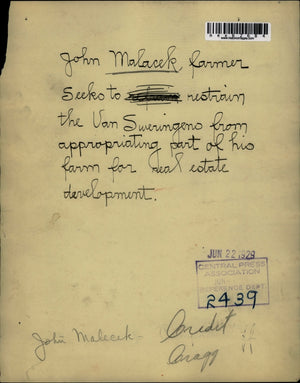 John Malacek, farmer
Seeks to restrain
the Van Sweringens from
appropriating part of his
farm for real estate
development.
JUN 22 1929
CENTRAL PRESS
ASSOCIATION
REFERENCE DEPT.
2439
John Malecek-
Credit
Cragg